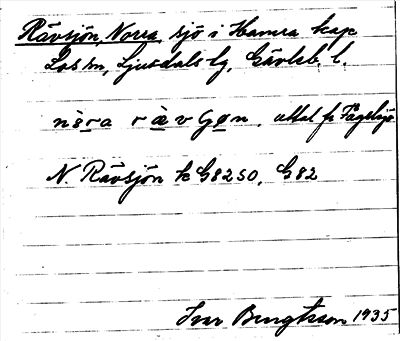 Rävsjön, Norra, sjö i Hamra kap
Los sn, Ljusdals tg, Gävleb. l.
nòra ràvʃøn, uttal fr Fågelsjö
N. Rävsjön k G8250, G82
Ivar Bengtsson 1935